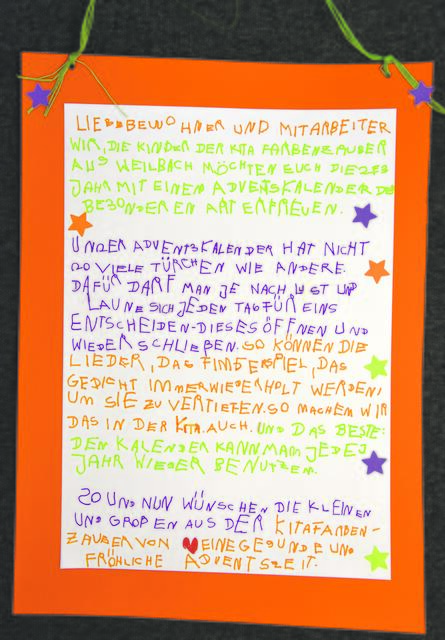 LIEBEBEWOHNER UND MITARBEITER
WIR, DIE KINDER DER KITA FARBENZAUBER
AUS WEILBACH MÖCHTEN EUCH DIESES
JAHR MIT EINEM ADVENTSKALENDER DER
BESONDEREN ART ERFREUEN.
UNSER ADVENTSKALENDER HAT NICHT
SO VIELE TÜRCHEN WIE ANDERE.
DAFÜR DARF MAN JE NACH LUST UND
LAUNE SICH JEDEN TAG FÜR EINS
ENTSCHEIDEN-DIESES ÖFFNEN UND
WIEDER SCHLIEßEN. SO KÖNNEN DIE
LIEDER, DAS FINGERSPIEL, DAS
GEDICHT IMMER WIEDERHOLT WERDEN,
UM SIE ZU VERTIEFEN. SO MACHEN WIR
DAS IN DER KITA. AUCH. UND DAS BESTE:
DEN KALENDER KANN MAN JEDES
JAHR WIEDER BENUTZEN.
SO UND NUN WÜNSCHEN DIE KLEINEN
UND GROßEN AUS DER KITA FARBEN-
ZAUBER VON EINE GESUNDE UND
FRÖHLICHE ADVENTSZEIT.